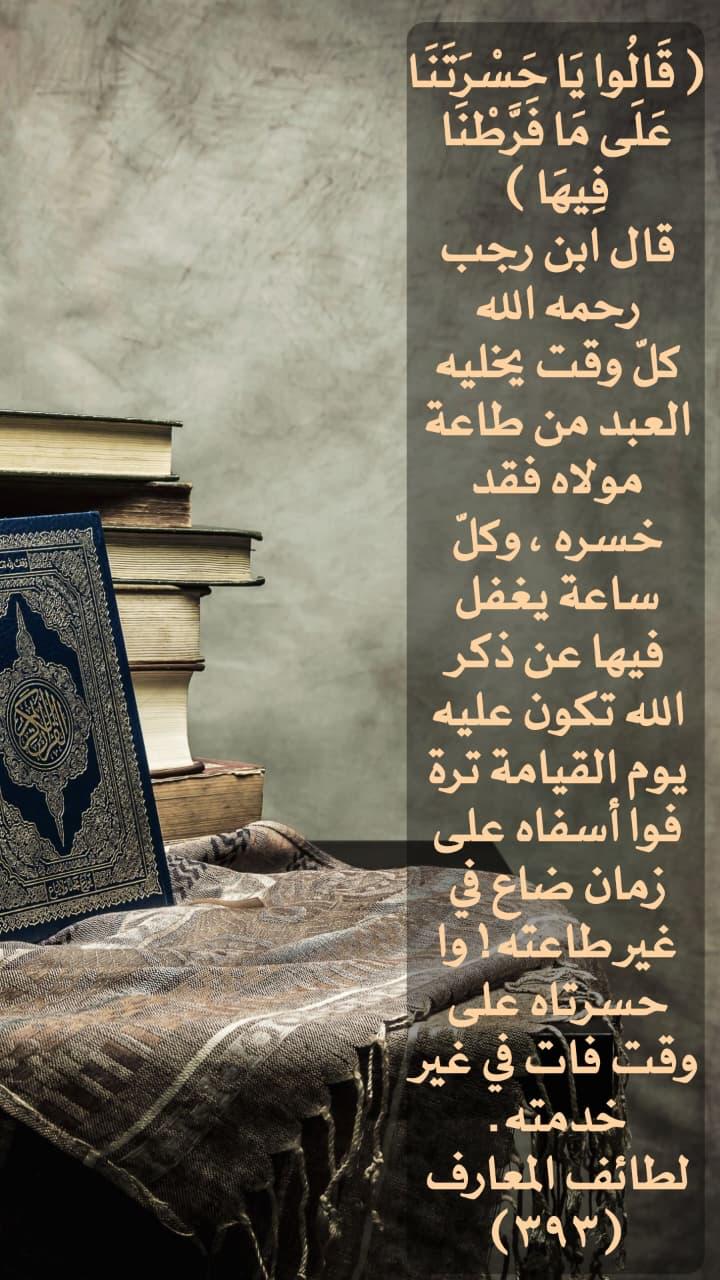 ( قَالُوا يَا حَسْرَتَنَا
عَلَى مَا فَرَّطْنَا
فِيهَا )
قال ابن رجب
رحمه الله
كلّ وقت يخليه
العبد من طاعة
مولاه فقد
خسره ، وكلّ
ساعة يغفل
فيها عن ذكر
الله تكون عليه
يوم القيامة ترة
فوا أسفاه على
زمان ضاع في
غير طاعته ! وا
حسرتاه على
وقت فات في غير
خدمته .
لطائف المعارف
(٣٩٣)
القرآن الكريم